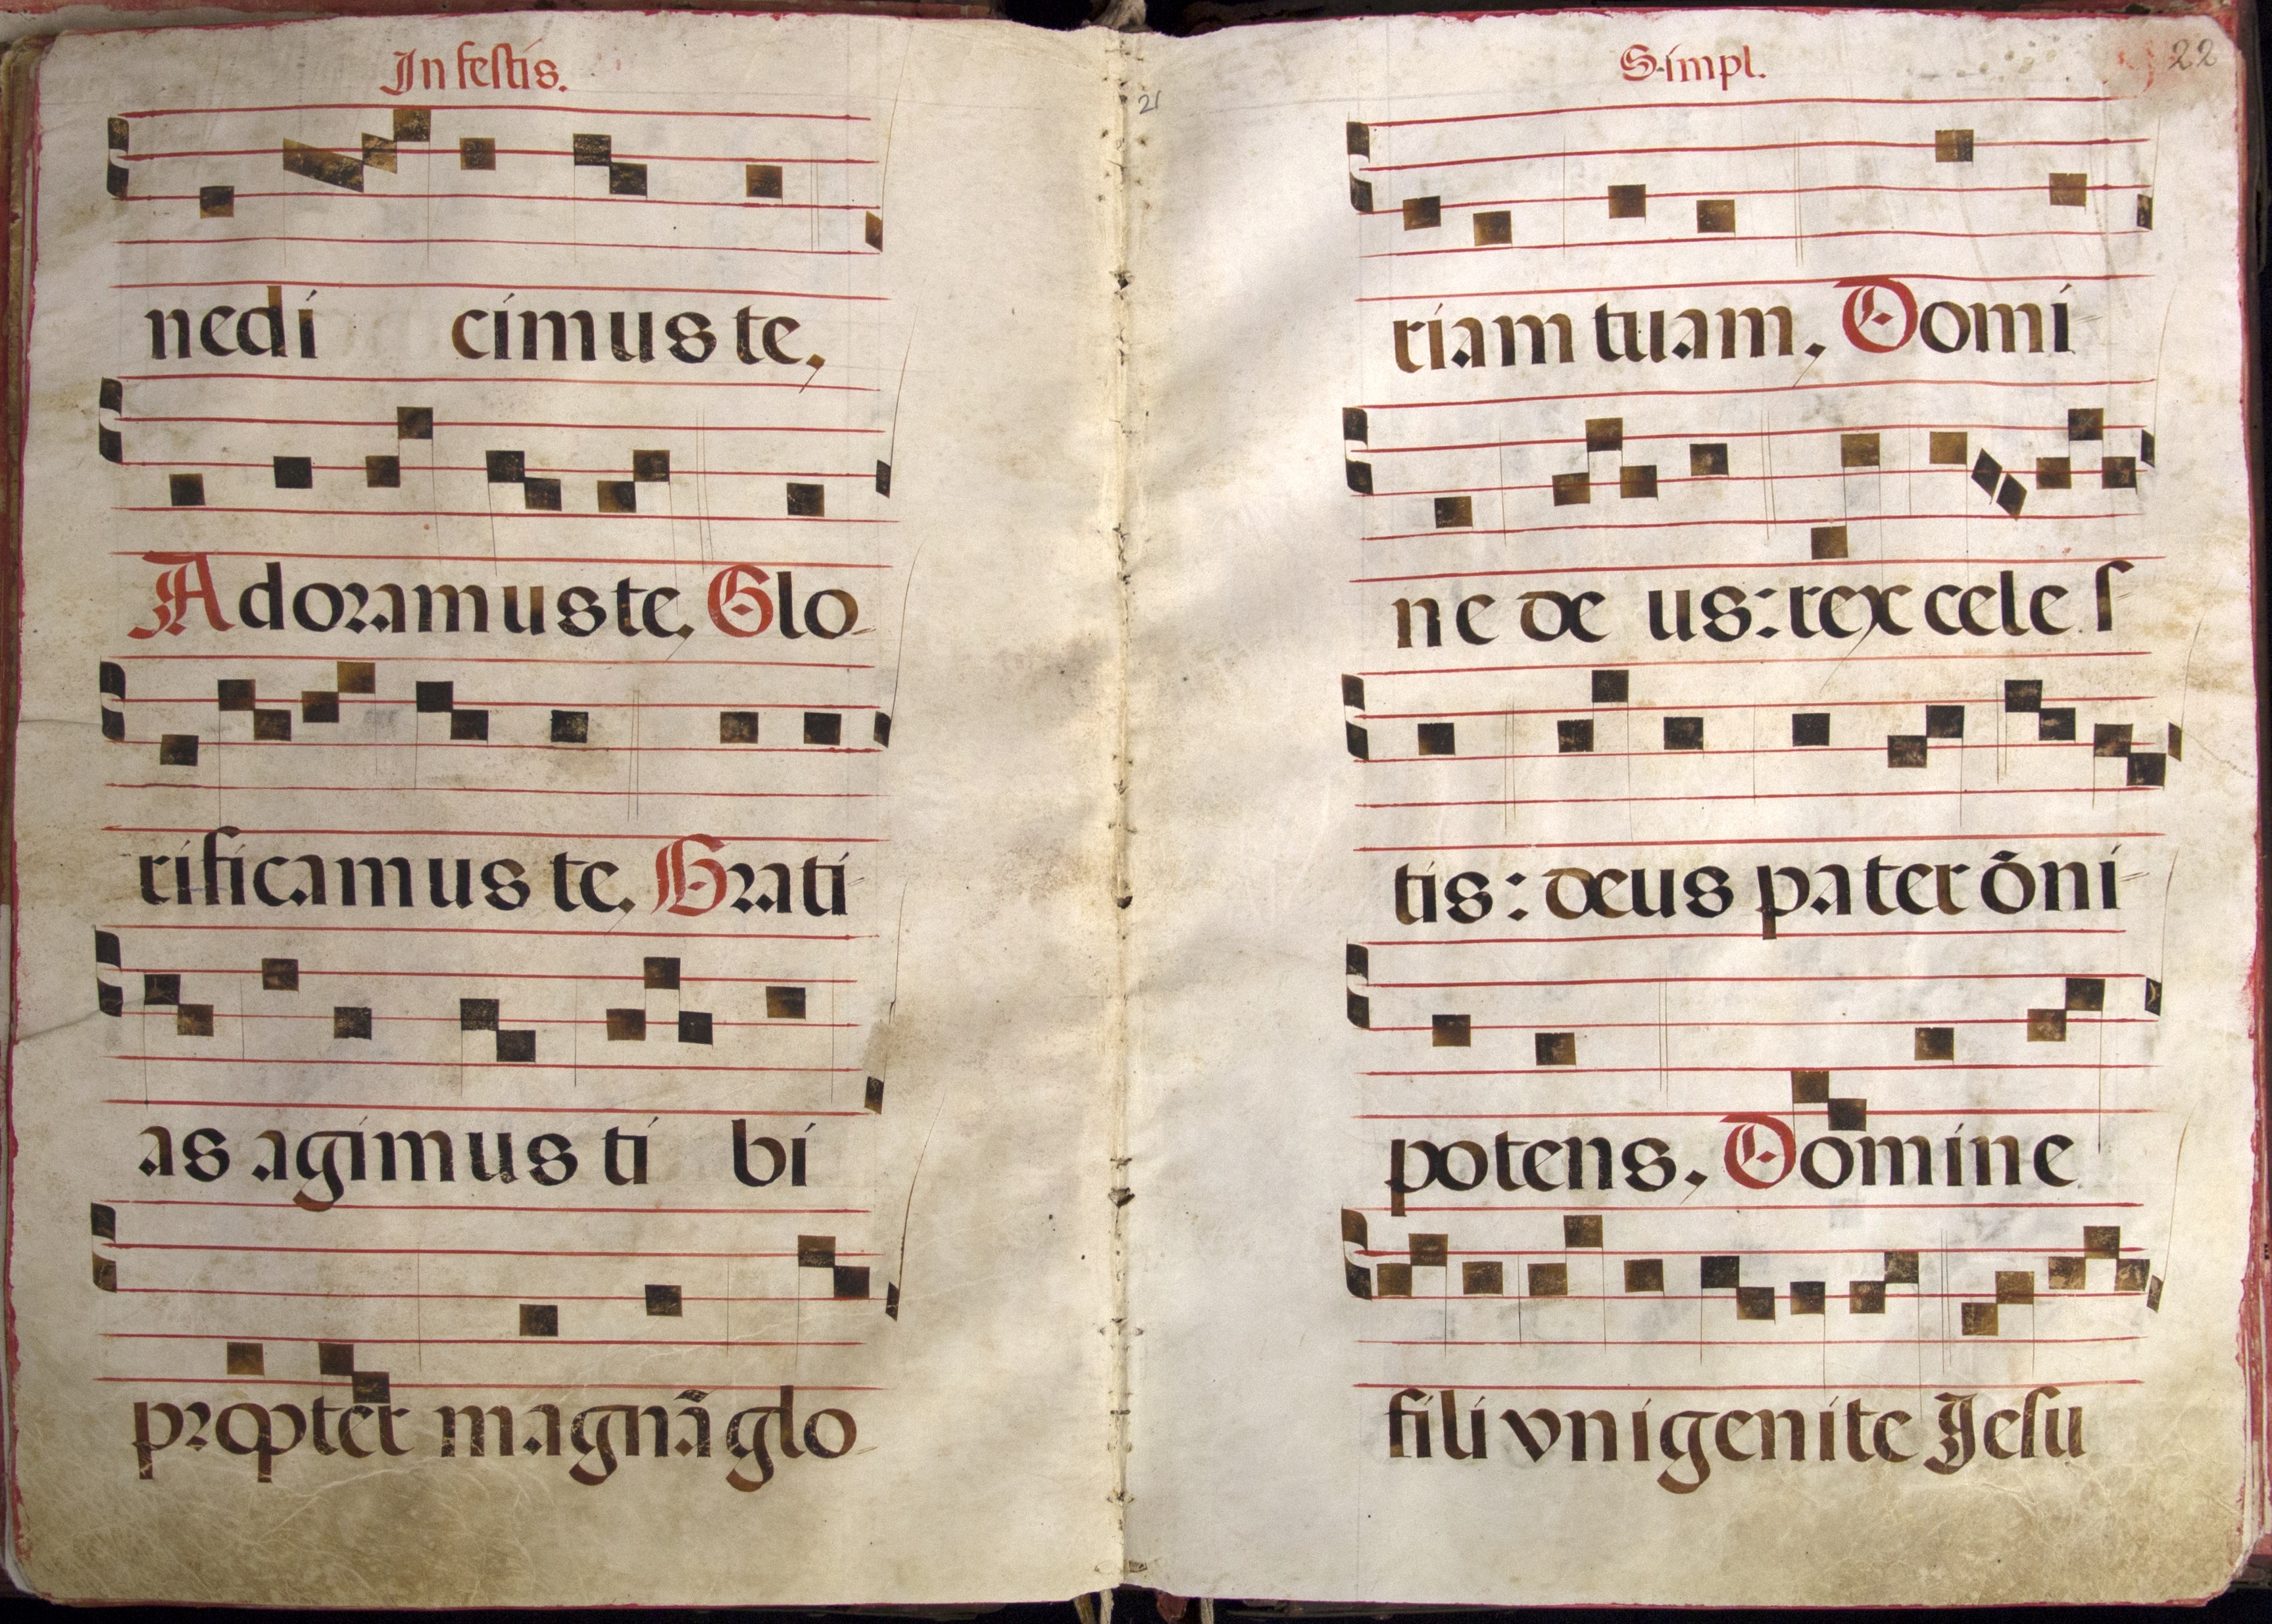 In festis.
nedi cimus te,
Adoramus te, Glo-
rificamus te, Grati-
as agimus ti bi
propter magnã glo-
21
Simpl.
22
riam tuam, Domi-
ne de us: rex celes
tis: deus pater õni-
potens. Domine
fili vnigenite Jesu